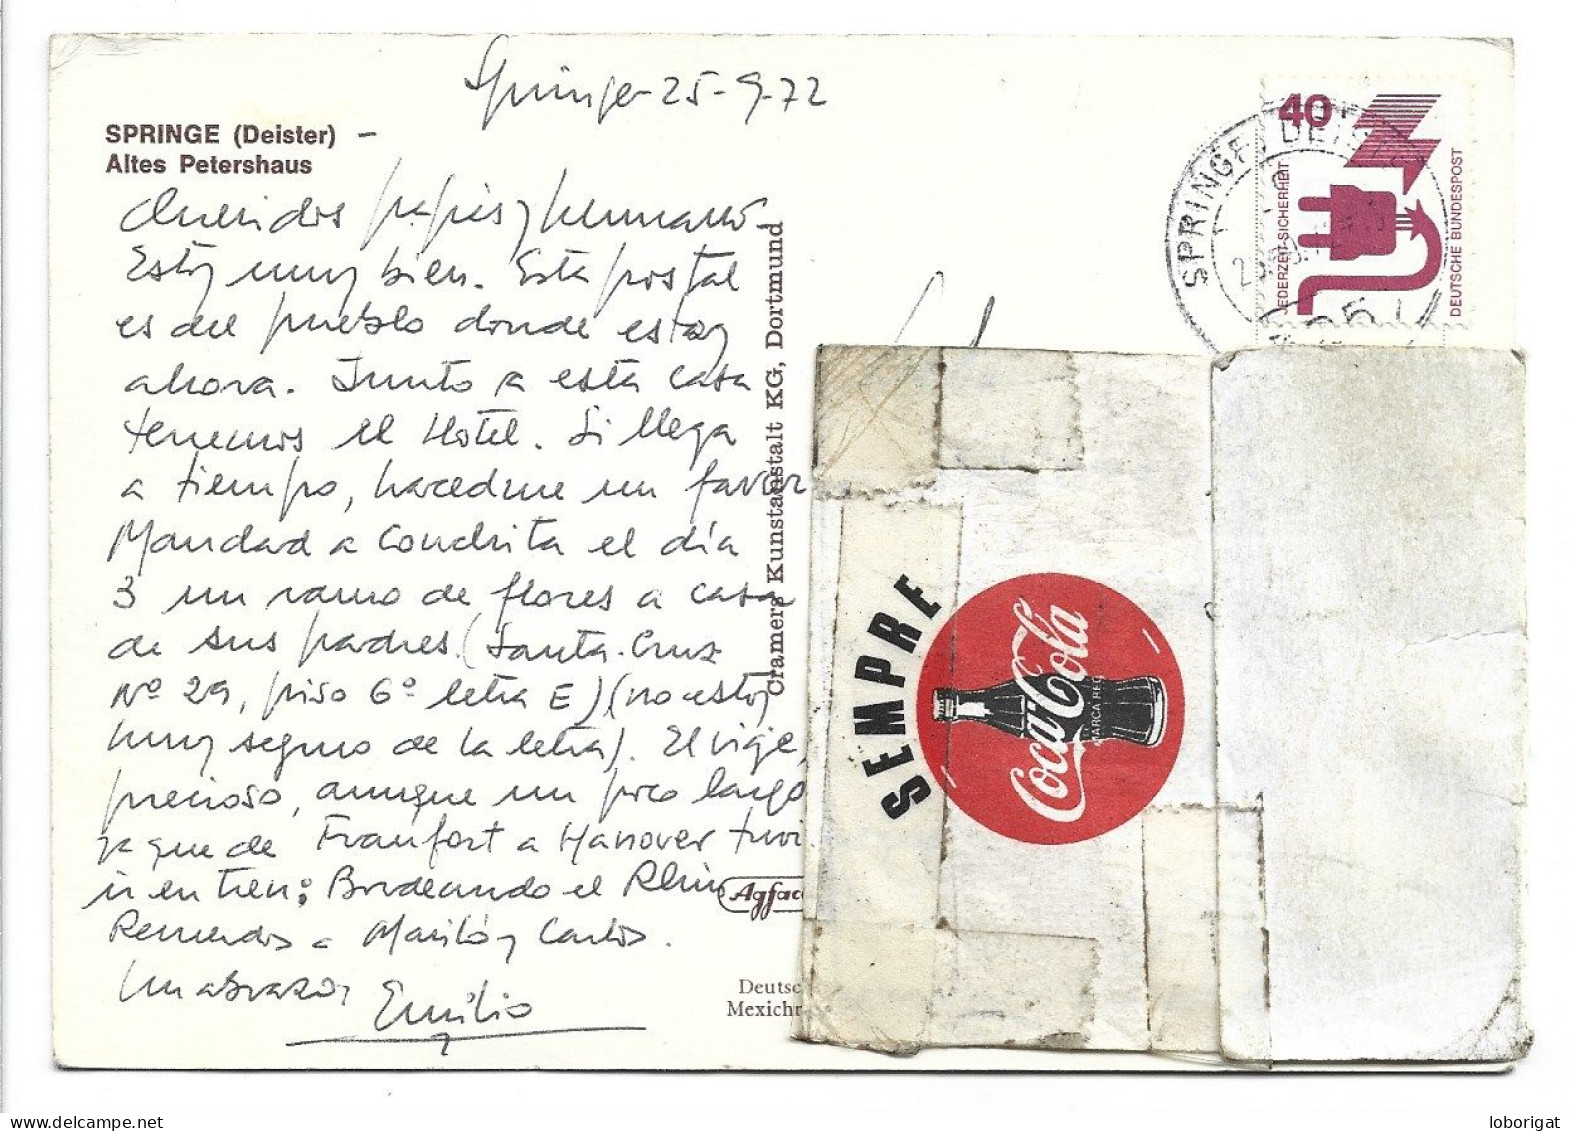 Springe-25-9-72
SPRINGE (Deister) -
Altes Petershaus
Queridos papás y hermanos.
Estoy muy bien. Esta postal
es del pueblo donde estoy
ahora. Junto a esta casa
tenemos el Hotel. Si llega
a tiempo, hacedme un favor
Mandad a Conchita el día
3 un ramo de flores a casa
de sus padres (Santa Cruz
Nº 29, piso 6º letra E) (no estoy
muy seguro de la letra). El viaje,
precioso, aunque un poco largo
ya que de Franfort a Hanover tuvi
ir en tren; Bordeando el Rhin
Recuerdos a Mariló y Carlos.
Un abrazo,
Emilio
Cramers Kunstanstalt KG, Dortmund
Agfac
Deutsc
Mexichr
40
JEDERZEIT SICHERHEIT
DEUTSCHE BUNDESPOST
SPRINGE, DEIST
SEMPRE
Coca-Cola
MARCA REG
loborigat